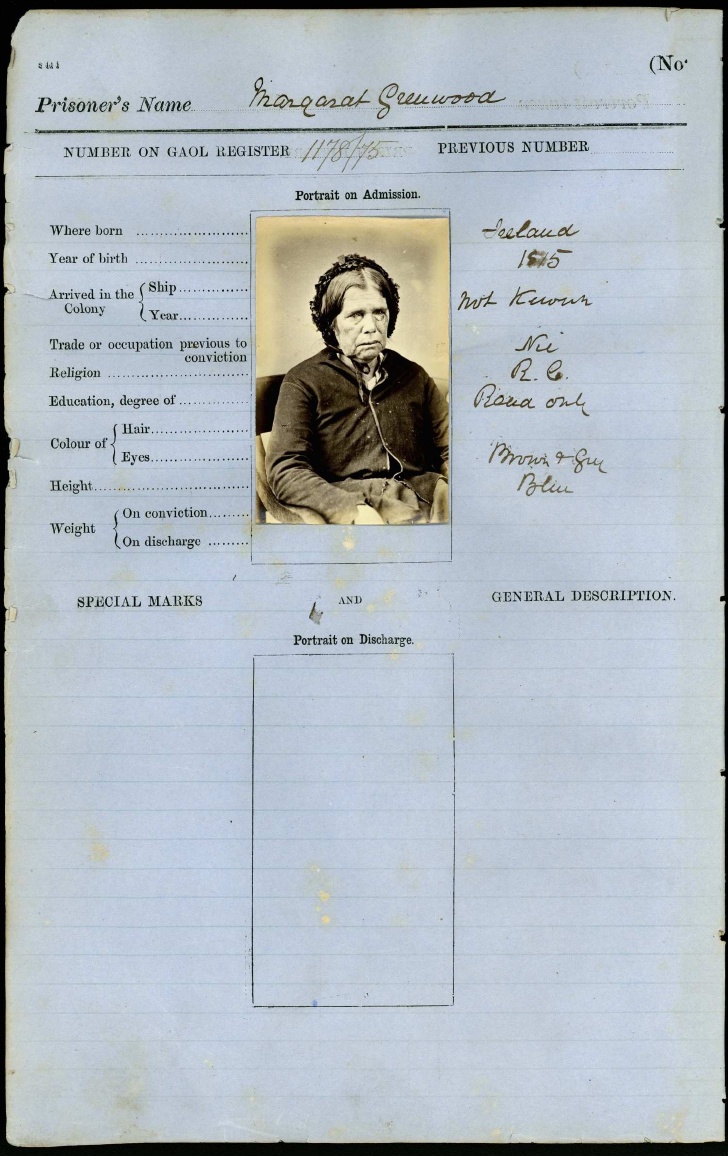 (No.
Prisoner's Name Margarat Greenwood
NUMBER ON GAOL REGISTER 1178/75 PREVIOUS NUMBER
Portrait on Admission.
Where born Ireland
Year of birth
Arrived in the Colony { Ship
Year not Known
Trade or occupation previous to
conviction Nil
Religion R. C.
Education, degree of Read only
Colour of { Hair Brown & Grey
Eyes Blue
Height
Weight { On conviction
On discharge
SPECIAL MARKS AND GENERAL DESCRIPTION.
Portrait on Discharge.